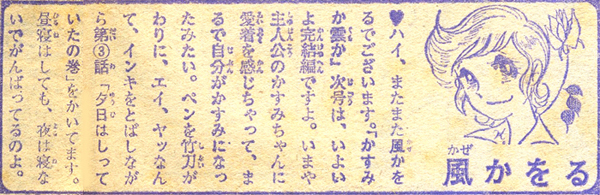 ♥ハイ、またまた風かを
るでございます。『かすみ
か雲か』次号は、いよい
よ完結編ですよ。いまや
主人公のかすみちゃんに
愛着を感じちゃって、ま
るで自分がかすみになっ
たみたい。ペンを竹刀が
わりに、エイ、ヤッなん
て、インキをとばしなが
ら第③話「夕日はしって
いたの巻」をかいてます。
昼寝はしても、夜は寝な
いでがんばってるのよ。
風かをる